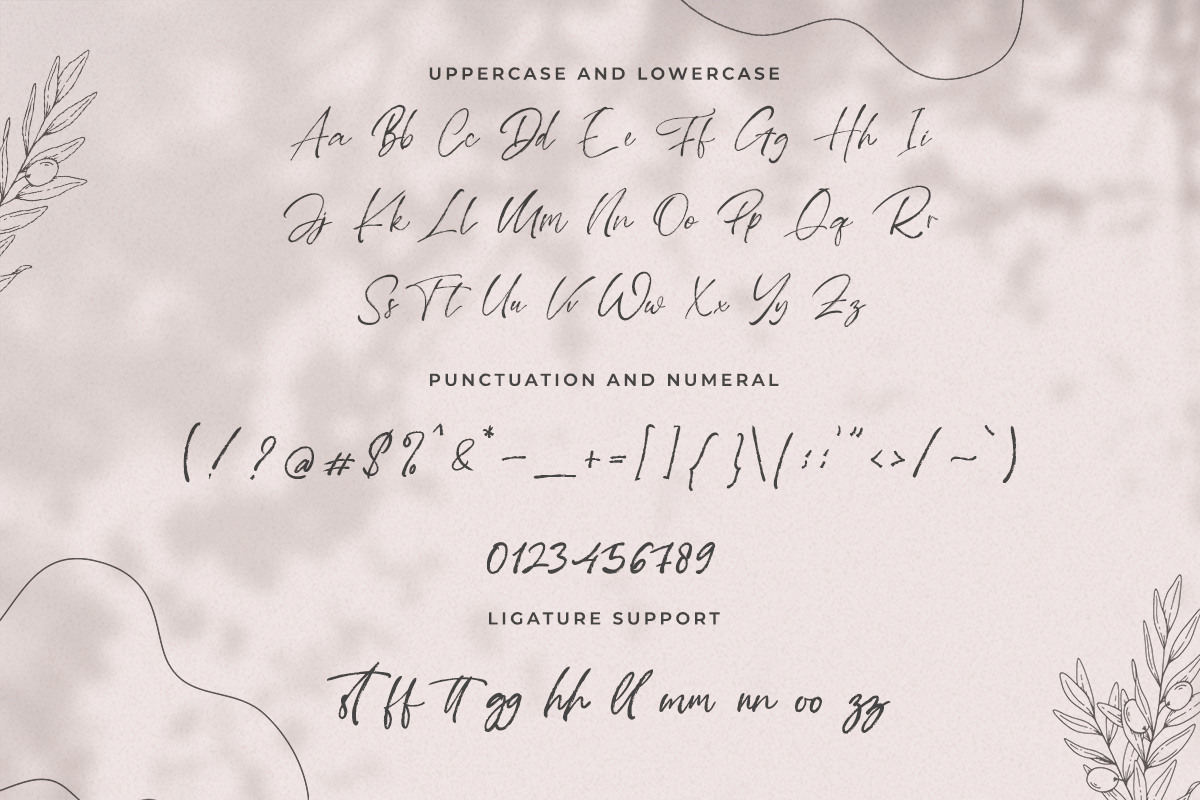 UPPERCASE AND LOWERCASE
Aa Bb Cc Dd Ee Ff Gg Hh Ii
Jj Kk Ll Mm Nn Oo Pp Qq Rr
Ss Tt Uu Vv Ww Xx Yy Zz
PUNCTUATION AND NUMERAL
( ! ? @ # $ % ^ & * - _ + = [ ] { } \ | ; : ' " < > / ~ ` )
0123456789
LIGATURE SUPPORT
st ff tt gg hh ll mm nn oo zz